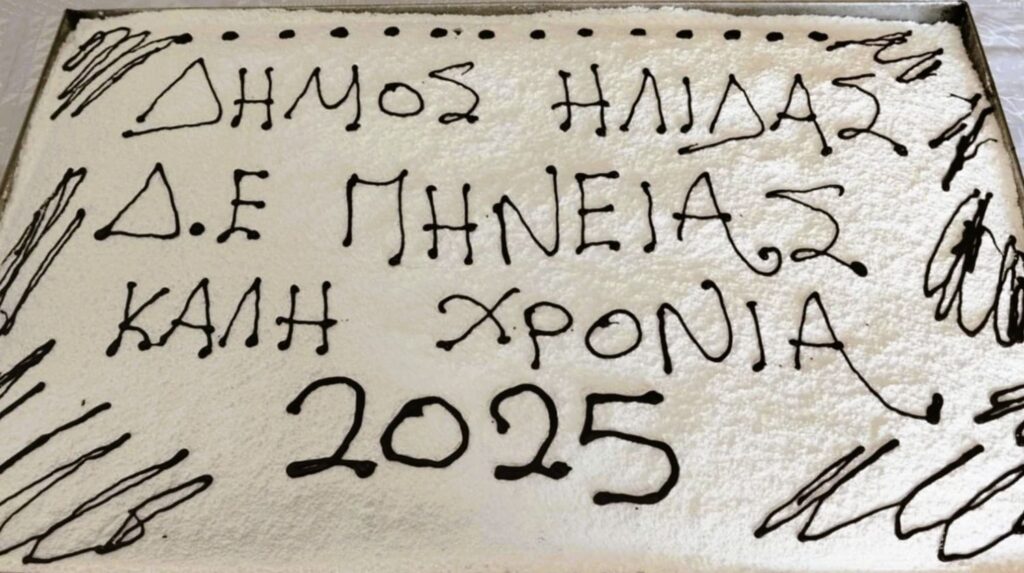 ΔΗΜΟΣ ΗΛΙΔΑΣ
Δ.Ε ΠΗΝΕΙΑΣ
ΚΑΛΗ ΧΡΟΝΙΑ
2025